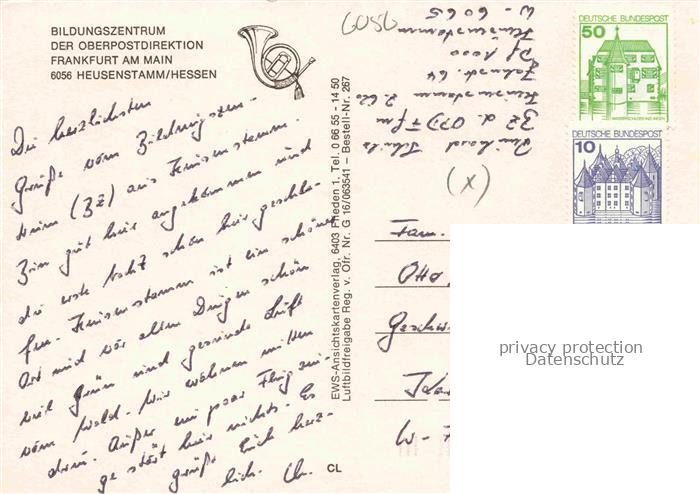 BILDUNGSZENTRUM
DER OBERPOSTDIREKTION
FRANKFURT AM MAIN
6056 HEUSENSTAMM/HESSEN
Die herzlichsten
Grüße vom Bildungszen-
trum (BZ) aus Heusenstamm.
Bin gut hier angekommen und
die erste Nacht schön hier geschla-
fen. Heusenstamm ist ein schöner
Ort und vor allen Dingen schön
viel Grün und gesunde Luft
vom Wald. Wir wohnen mitten
drin. Außer ein paar Flugzeu-
ge stört hier nichts. Es
grüßt Euch herz-
lich
CL
EWS-Ansichtskartenverlag, 6403 Flieden 1, Tel. 0 66 55 - 14 50
Luftbildfreigabe Reg. v. Ofr. Nr. G 16/063541 – Bestell-Nr. 267
6056
W - 6065
Heusenstamm
Pf 1000
Heusenstamm Z. 620
BZ d. OPD Ffm
(x)
DEUTSCHE BUNDESPOST
50
WASSERSCHLOSS INZLINGEN
DEUTSCHE BUNDESPOST
10
Fam.
Otto,
Geschw
W-
privacy protection
Datenschutz